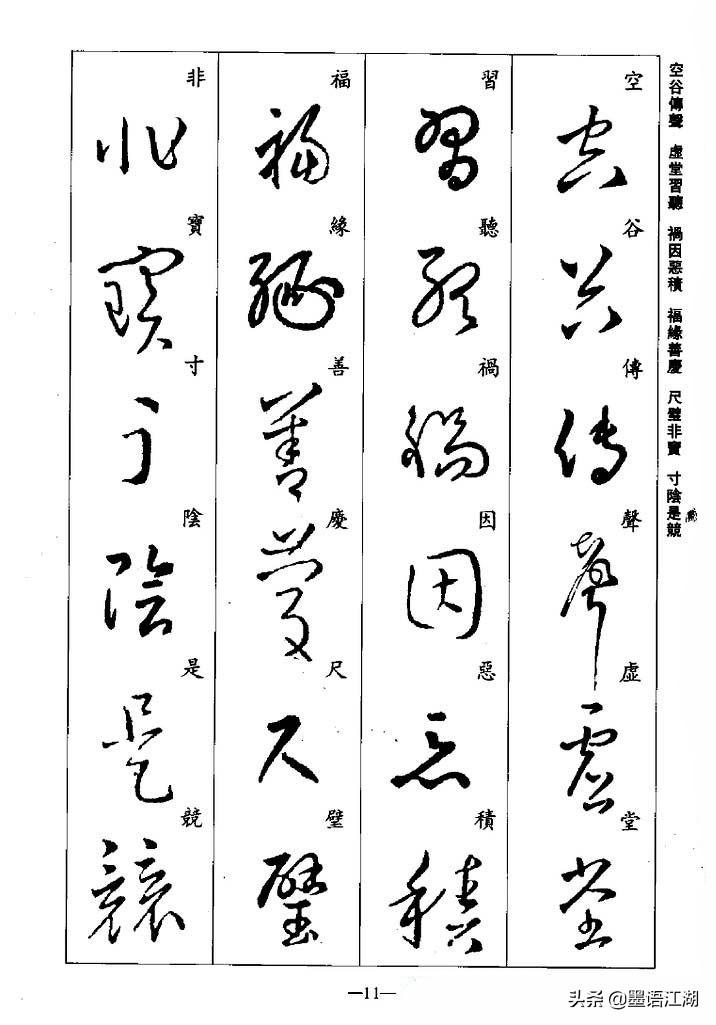 空谷傳聲 虛堂習聽 禍因惡積 福緣善慶 尺璧非寶 寸陰是競
空谷傳聲虛堂
習聽禍因惡積
福緣善慶尺璧
非寶寸陰是競
—11—
头条 @墨语江湖